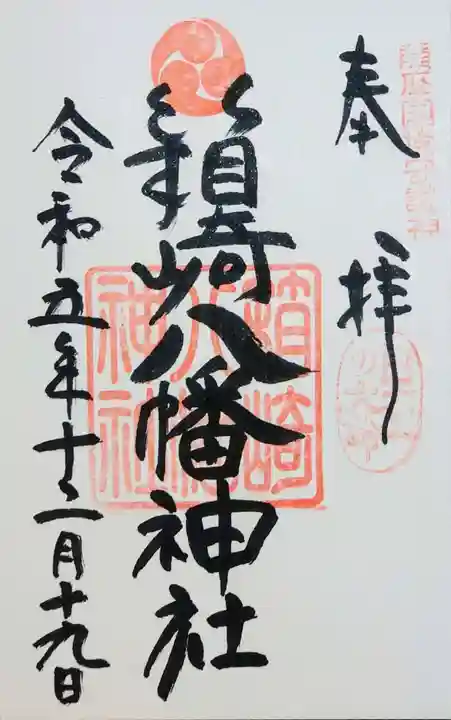 奉拝
箱崎八幡神社
令和五年十二月十九日
箱崎
八幡
神社